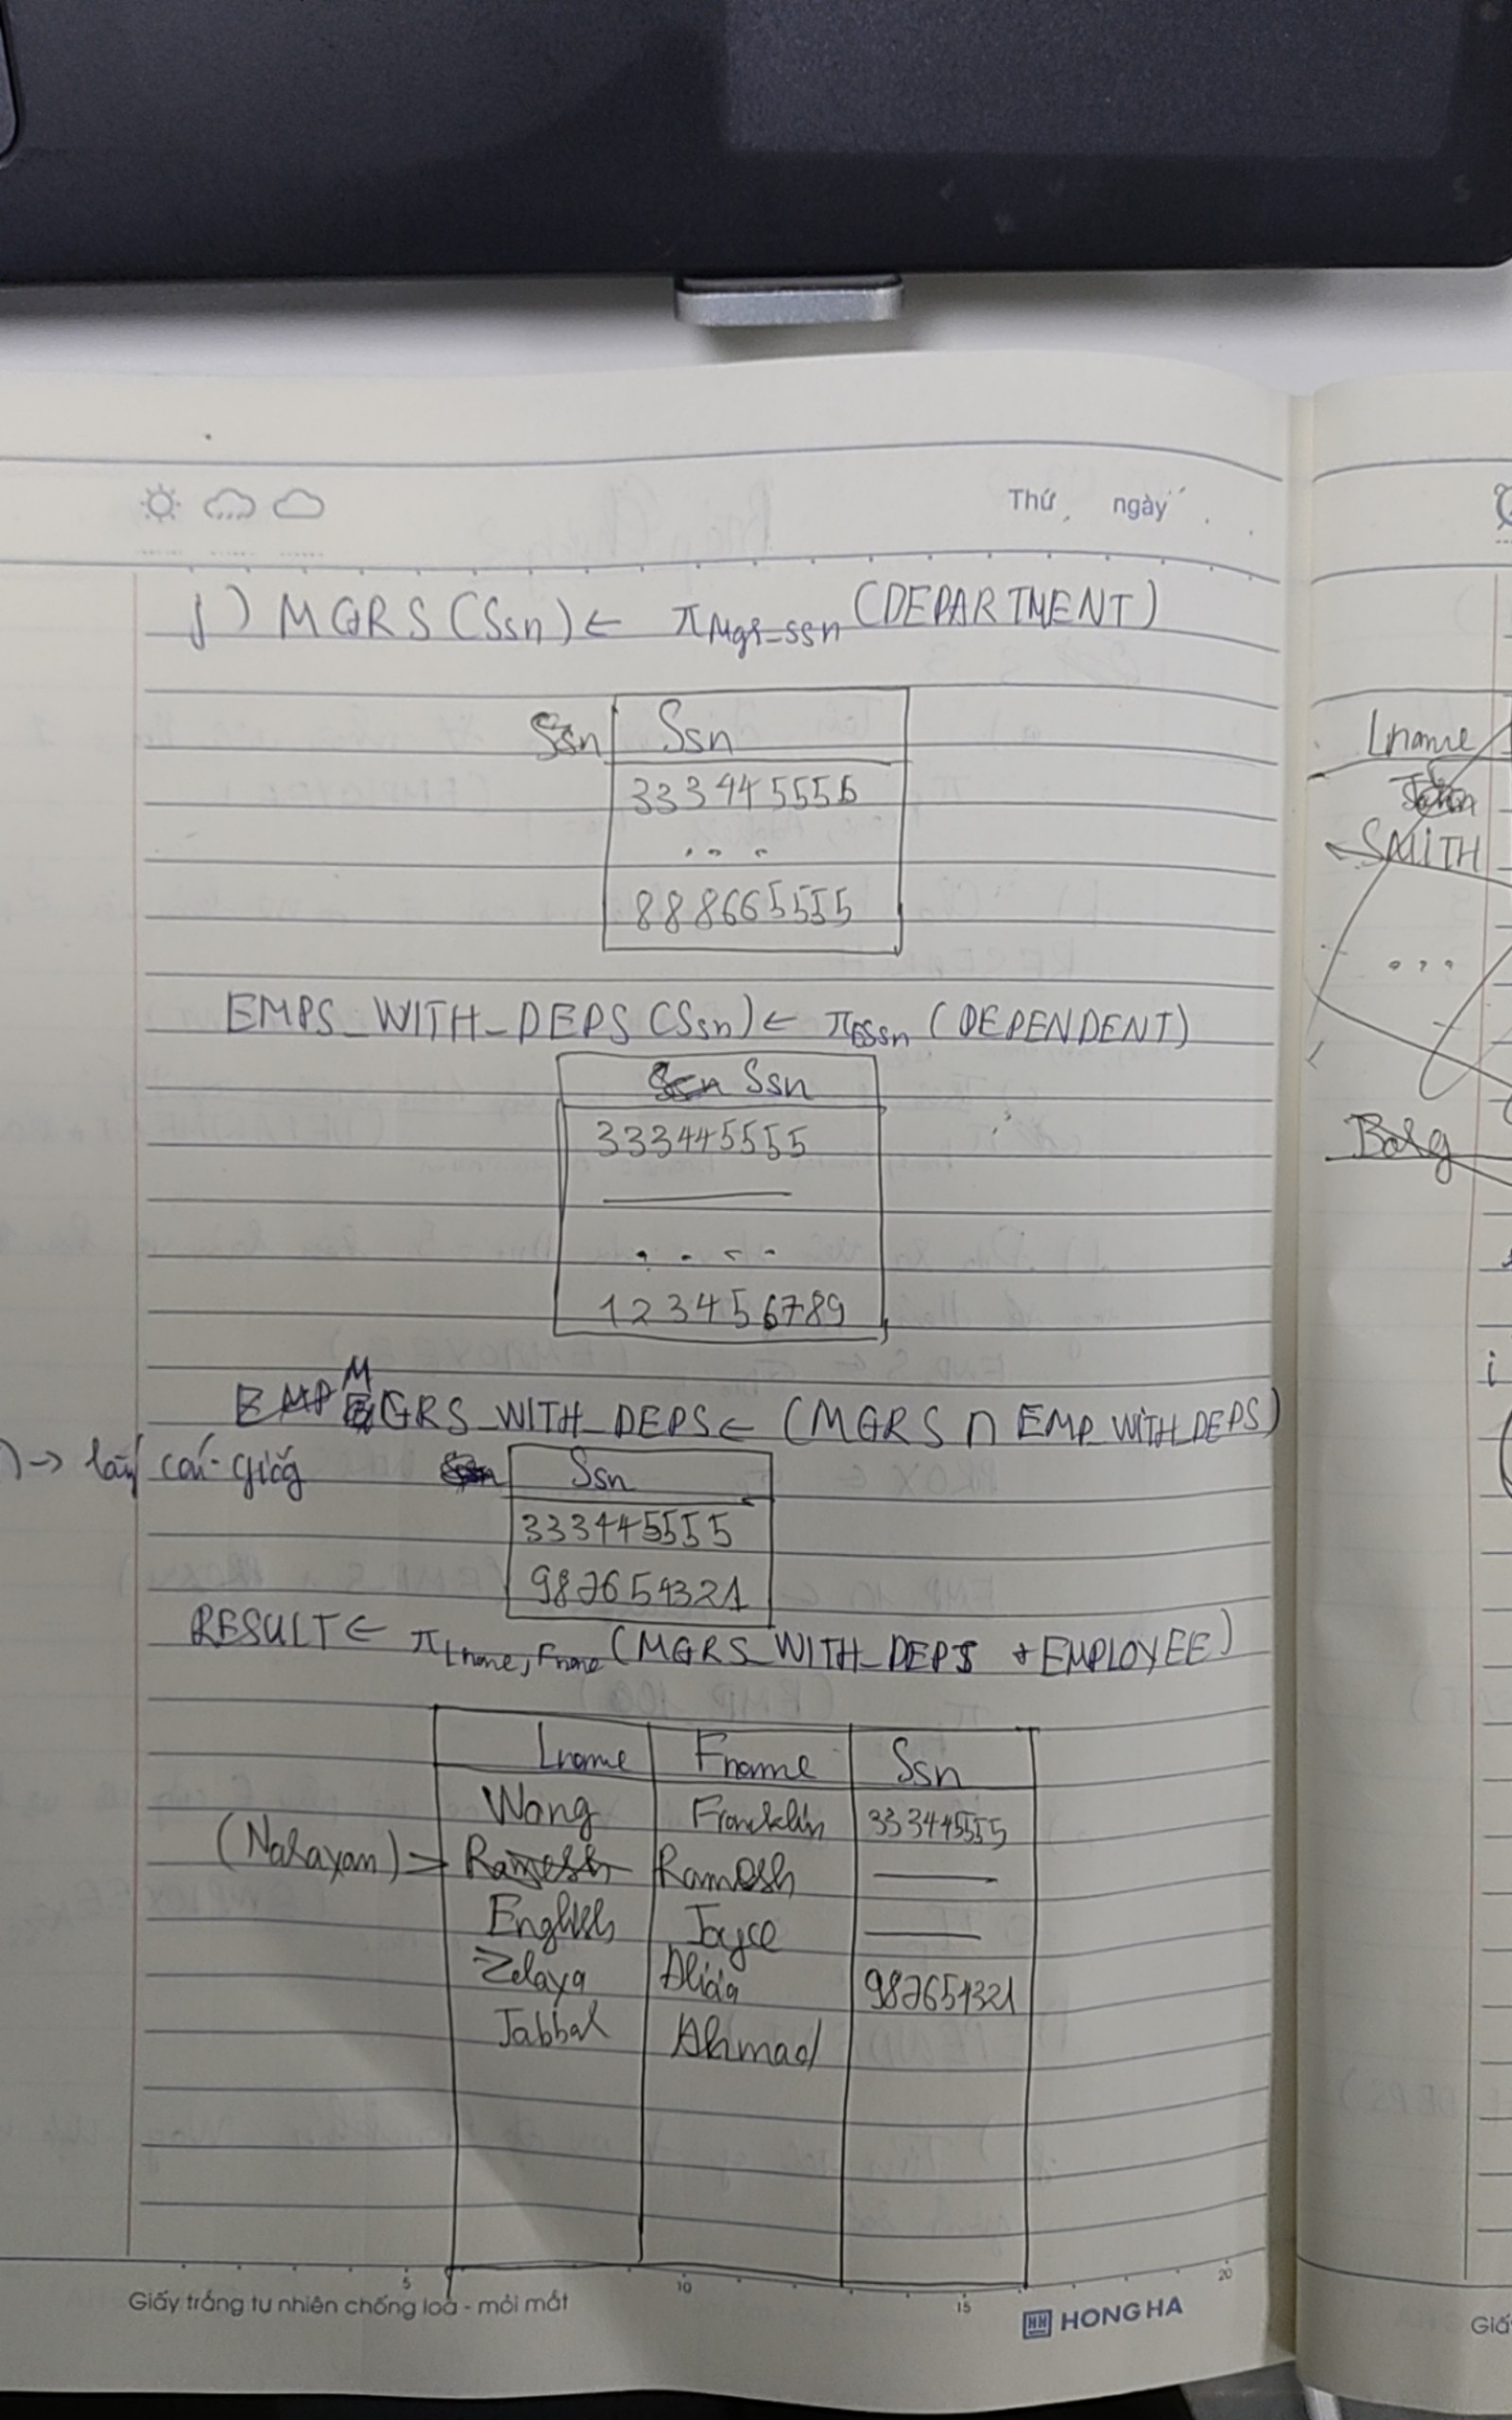 Thứ ngày
j) MGRS (Ssn) ← π Mgr_ssn (DEPARTMENT)
Ssn Ssn
333445555
...
888665555
EMPS_WITH_DEPS (Ssn) ← π Essn (DEPENDENT)
Ssn
333445555
....
123456789
MGRS_WITH_DEPS ← (MGRS ∩ EMP_WITH_DEPS)
→ lấy cái giống
Ssn
333445555
987654321
RESULT ← π Lname, Fname (MGRS_WITH_DEPS * EMPLOYEE)
Lname Fname Ssn
Wong Francklin 333445555
(Narayan) Ramesh Ramesh
English Joyce
Zelaya Alicia 987654321
Jabbar Ahmad
5 10 15 20
Giấy trắng tự nhiên chống loá - mỏi mắt
HH HONG HA
Lname
John
SMITH
...
Borg
i
Giấ